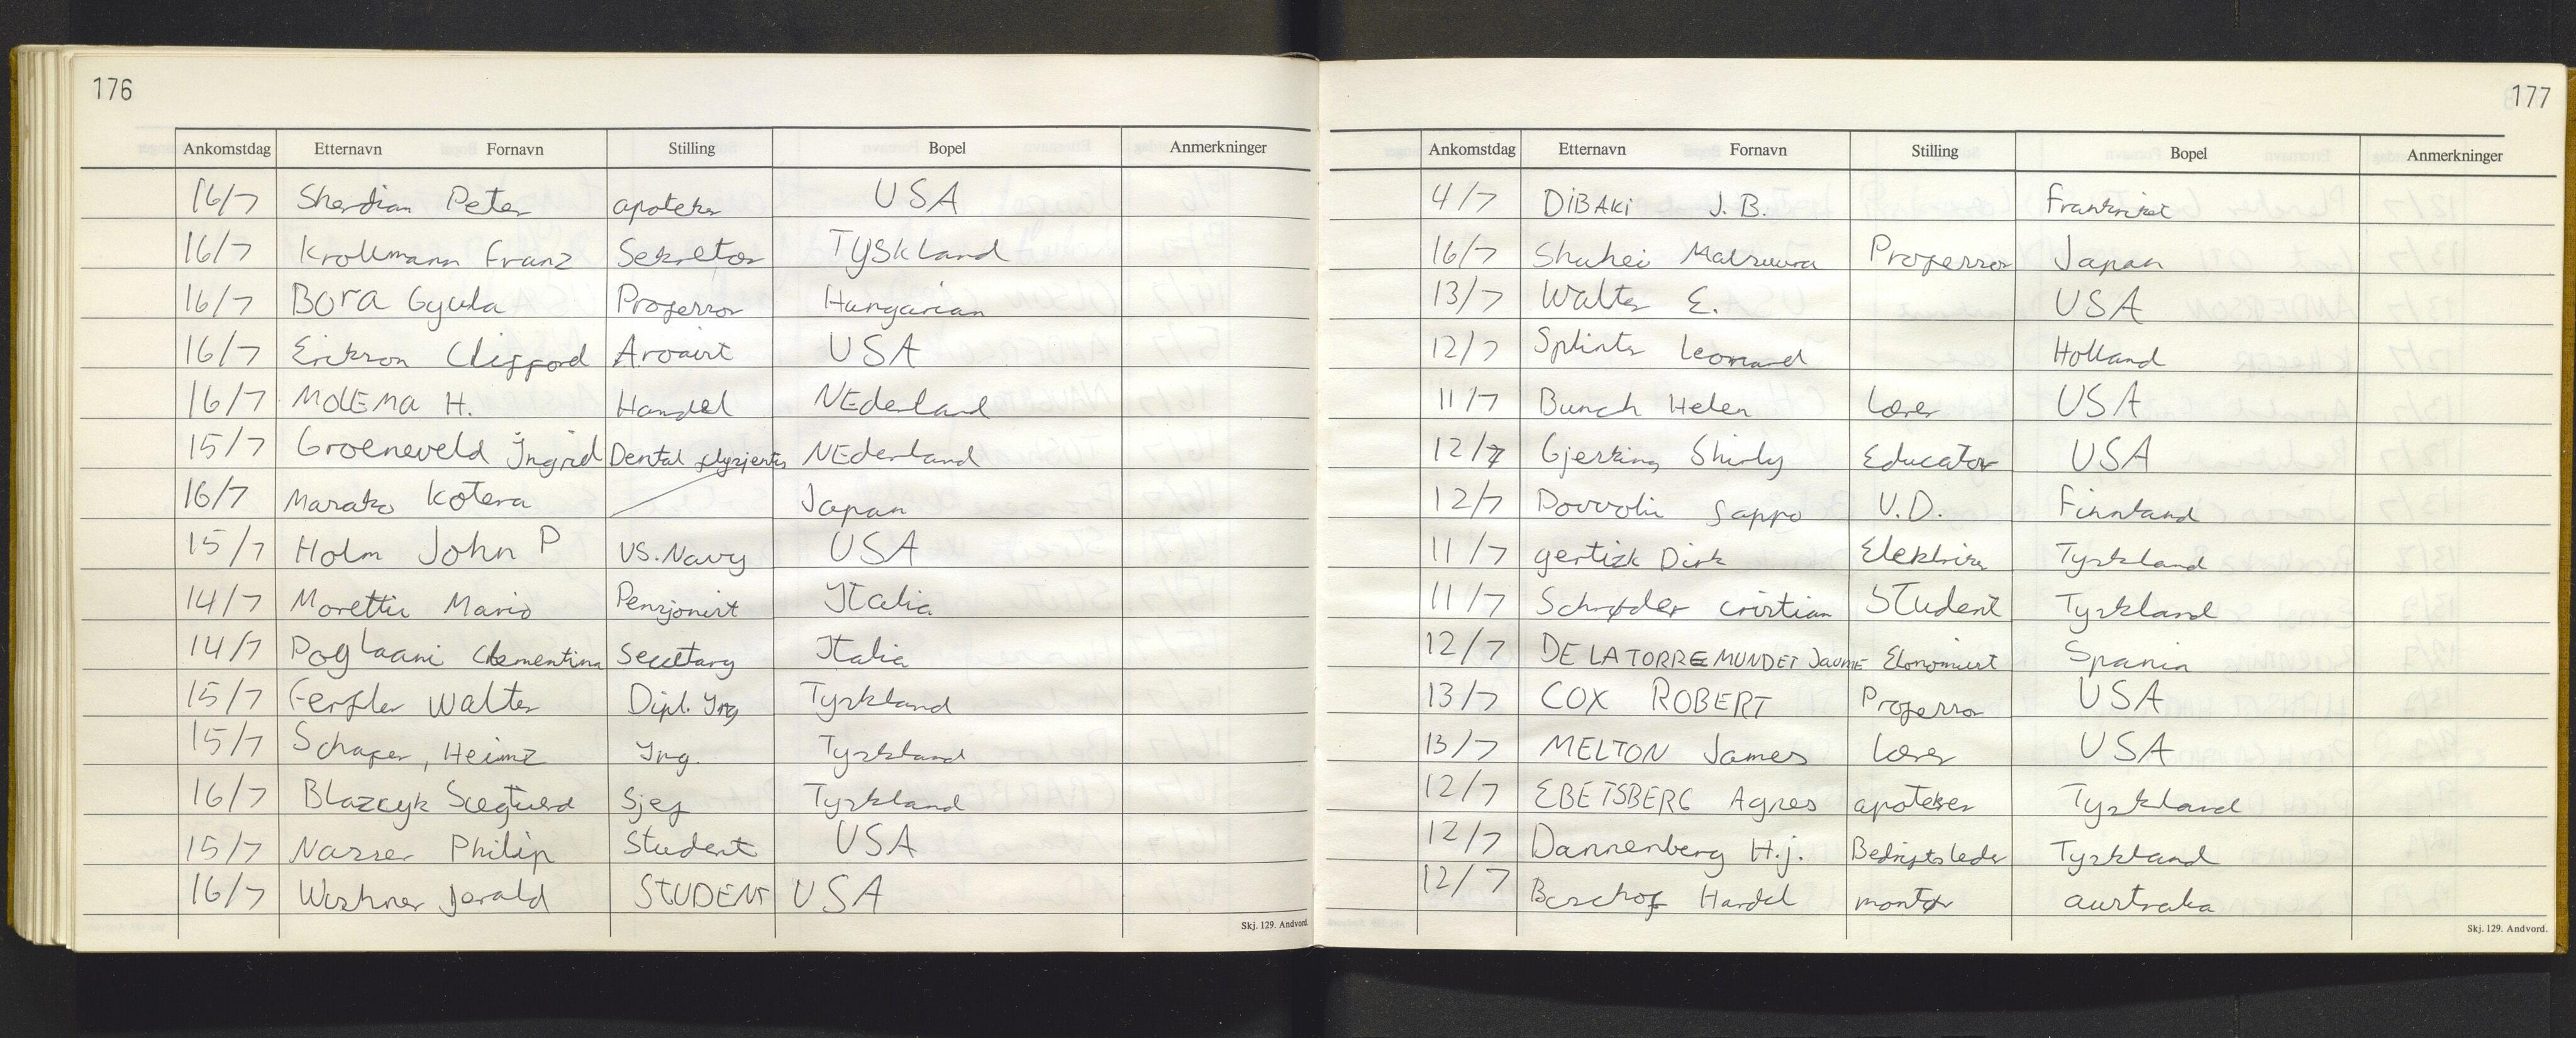 176
Ankomstdag Etternavn Fornavn Stilling Bopel Anmerkninger
16/7 Sherdian Peter apoteker USA
16/7 Krollmann Franz Sekretær TYSKLand
16/7 BORA Gyula Professor Hungarian
16/7 Erikson Clifford USA
16/7 MOLEMA H. Handel NEderland
15/7 Groeneveld Ingrid Dental NEderland
16/7 Kotera Japan
15/7 Holm John P US.Navy USA
14/7 Moretti Mario Pensjonist Italia
14/7 Clementina Italia
15/7 Walter Dipl. Ing Tyskland
15/7 Schafer, Heinz Ing. Tyskland
16/7 Blazcyk Sjef Tyskland
15/7 Nasser Philip Student USA
16/7 Jerald STUDENT USA
Skj. 129. Andvord.
177
Ankomstdag Etternavn Fornavn Stilling Bopel Anmerkninger
4/7 DiBAKi J.B. Frankriket
16/7 Shuhei Matsuura Professor Japan
13/7 Walter E. USA
12/7 Splinter Leonard Holland
11/7 Bunch Helen Lærer USA
12/7 Educator USA
12/7 V.D. Finnland
11/7 Dirk Tyskland
11/7 Schrøder Cristian STudent Tyskland
12/7 DE LA TORRE MUNDET JAUME Ekonomist Spania
13/7 COX ROBERT Professor USA
13/7 MELTON James Lærer USA
12/7 EBETSBERG Agnes apoteker Tyskland
12/7 Dannenberg H.j. Bedriftsleder Tyskland
12/7 montør
Skj. 129. Andvord.